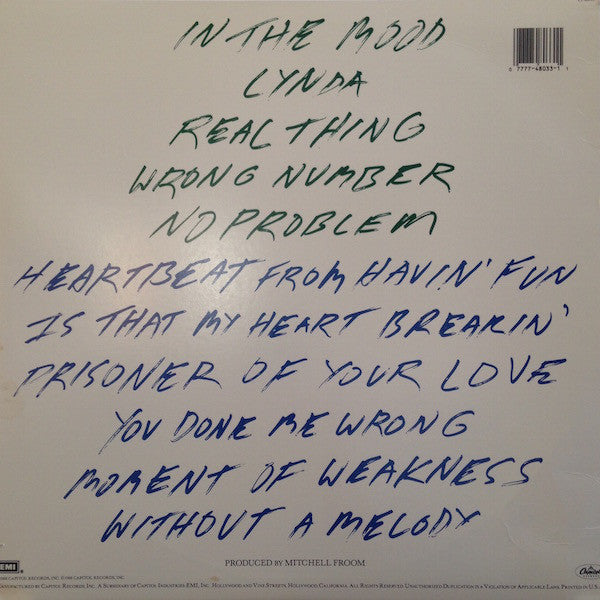 IN THE MOOD
6 77774-48033-1 1
LYNDA
REAL THING
WRONG NUMBER
NO PROBLEM
HEARTBEAT FROM HAVIN' FUN
IS THAT MY HEART BREAKIN'
PRISONER OF YOUR LOVE
YOU DONE ME WRONG
MOMENT OF WEAKNESS
WITHOUT A MELODY
PRODUCED BY MITCHELL FROOM
EMI
Capitol
1988 CAPITOL RECORDS, INC. ©1988 CAPITOL RECORDS, INC.
MANUFACTURED BY CAPITOL RECORDS, INC. A SUBSIDIARY OF CAPITOL INDUSTRIES-EMI, INC. HOLLYWOOD AND VINE STREETS, HOLLYWOOD, CALIFORNIA. ALL RIGHTS RESERVED. UNAUTHORIZED DUPLICATION IS A VIOLATION OF APPLICABLE LAWS. PRINTED IN U.S.